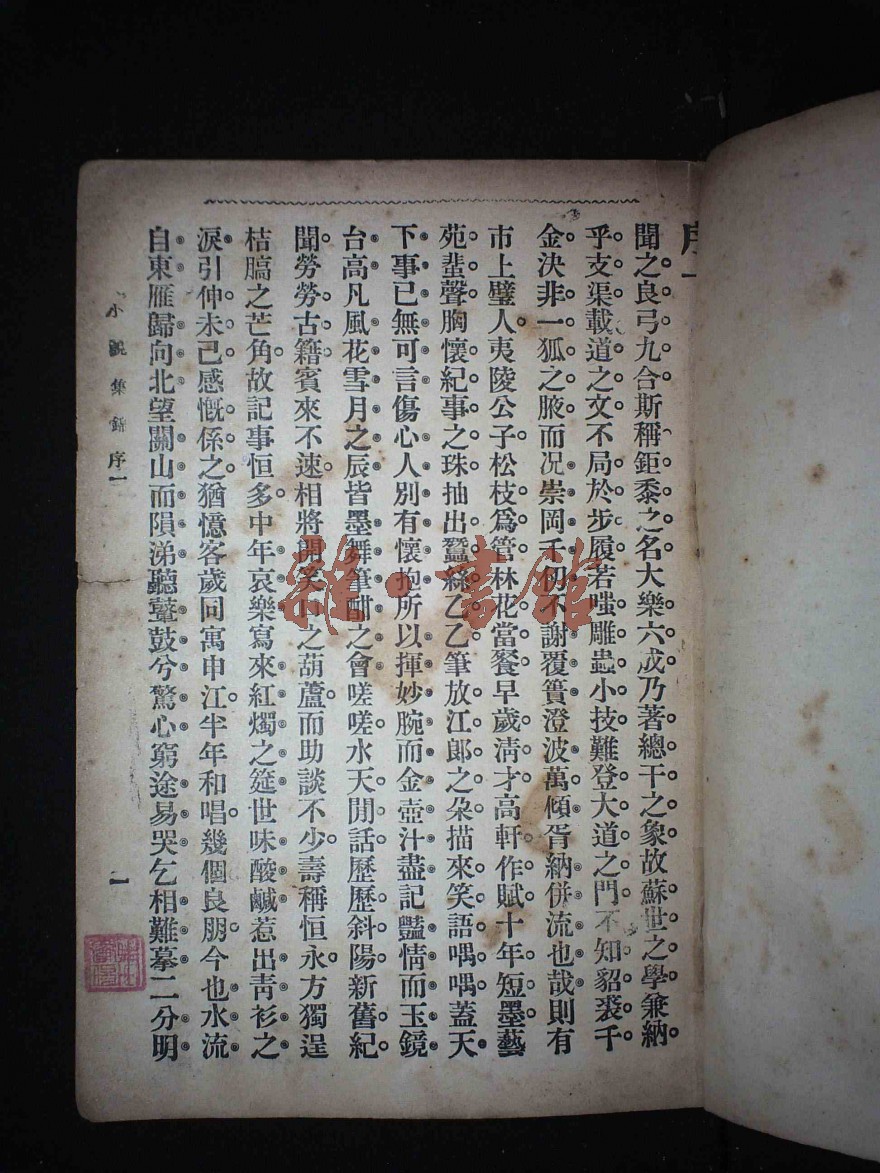 序一
聞之良弓九合斯稱鉅黍之名大樂六成乃著總干之象故蘇世之學兼納
乎支渠載道之文不局於步履若嗤雕蟲小技難登大道之門不知貂裘千
金決非一狐之腋而况崇岡千仞不謝覆簣澄波萬傾胥納併流也哉則有
市上璧人夷陵公子松枝爲管林花當餐早歲淸才高軒作賦十年短墨藝
苑蜚聲胸懷紀事之珠抽出蠶絲乙乙筆放江郞之朶描來笑語喁喁蓋天
下事已無可言傷心人別有懷抱所以揮妙腕而金壺汁盡記豔情而玉鏡
台高凡風花雪月之辰皆墨舞筆酣之會嗟嗟水天閒話歷歷斜陽新舊紀
聞勞勞古籍賓來不速相將開笑口之葫蘆而助談不少壽稱恒永方獨逞
桔膈之芒角故記事恒多中年哀樂寫來紅燭之筵世味酸鹹惹出靑衫之
淚引伸未已感慨係之猶憶客歲囘寓申江半年和唱幾個良朋今也水流
自東雁歸向北望關山而隕涕聽鼙鼓兮驚心窮途易哭乞相難摹二分明
小說集錦 序一
一
雜·書館